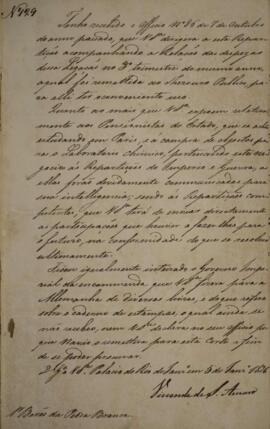 Nº 129
Tenho recebido o Officio Nº 86 de 7 de Outubro
do anno passado, que VSª dirigira a esta Reparti
ção acompanhando a Relação das despezas
dessa Legação no 3º trimestre do mesmo anno,
a qual foi remettida ao Thesouro Publico, pa
ra alli ter o conveniente uso.
Quanto ao mais que VSª expoem relativa
mente aos Pensionistas do Estado, que se achão
estudando em Paris, e á compra de objectos pa
ra o Laboratorio Chimico, pertencendo este ne
gocio ás Repartições do Imperio e Guerra, a
ellas forão devidamente communicadas para
sua intelligencia; sendo ás Repartições com
petentes, que VSª terá de enviar directamente
as participações que houver a fazer-lhes para
o futuro, na conformidade do que se resolveo
ultimamente.
Ficou igualmente inteirado o Governo Impe
rial da encommenda que VSª fizera para a
Allemanha de diversos livros, e do que refere
sobre o caderno de estampas, o qual ainda se
não recebeo, nem VSª declara no seu officio por
que Navio o remettera para esta Corte a fim
de se poder procurar.
Dº Gº a VSª. Palacio do Rio de Janrº em 5 de Janrº 1826
Visconde de S. Amaro
Sr Barão da Pedra Branca.